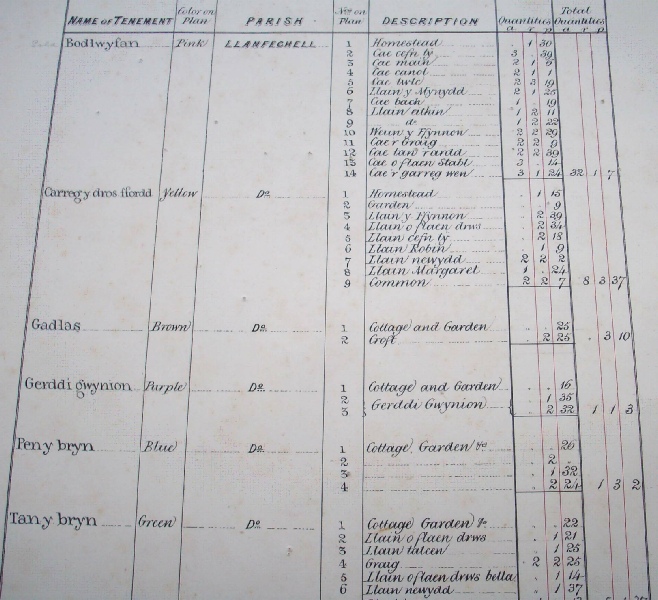 NAME OF TENEMENT Color on Plan PARISH Nos on Plan DESCRIPTION Quantities a r p Total Quantities a r p
Bodlwyfan Pink LLANFECHELL 1 Homestead . 1 30
2 Cae cefn ty 3 . 39
3 Cae main 2 1
4 Cae canol 2 1 1
5 Cae twlc 2 3 19
6 Llain y Mynydd 2 1 25
7 Cae bach 1 . 19
8 Llain aikin 1 2 11
9 do 1 2 22
10 Weun y Ffynnon 2 2 29
11 Cae'r Graig 2 2 9
12 Cae tan rardd 2 2 39
13 Cae o flaen Stabl 3 . 14
14 Cae'r garreg wen 3 1 24 32 1 7
Carreg y dros ffordd Yellow Do 1 Homestead . 1 15
2 Garden . . 9
3 Llain y Ffynnon . 2 39
4 Llain o flaen drws . 2 34
5 Llain cefn ty . 2 18
6 Llain Robin . 1 9
7 Llain newydd 2 2 2
8 Llain Margaret 1 . 24
9 Common 2 2 7 8 3 37
Gadlas Brown Do 1 Cottage and Garden . . 25
2 Croft . 2 25 . 3 10
Gerddi gwynion Purple Do 1 Cottage and Garden . . 16
2 . 1 35
3 Gerddi Gwynion . 2 32 1 1 3
Pen y bryn Blue Do 1 Cottage Garden &c . . 26
2 . 2 .
3 . 1 32
4 . 2 24 1 3 2
Tan y bryn Green Do 1 Cottage Garden &c . . 22
2 Llain o flaen drws . 1 21
3 Llain talcen . 1 25
4 Graig 2 2 25
5 Llain o flaen drws bella . 1 14
6 Llain newydd . 1 37